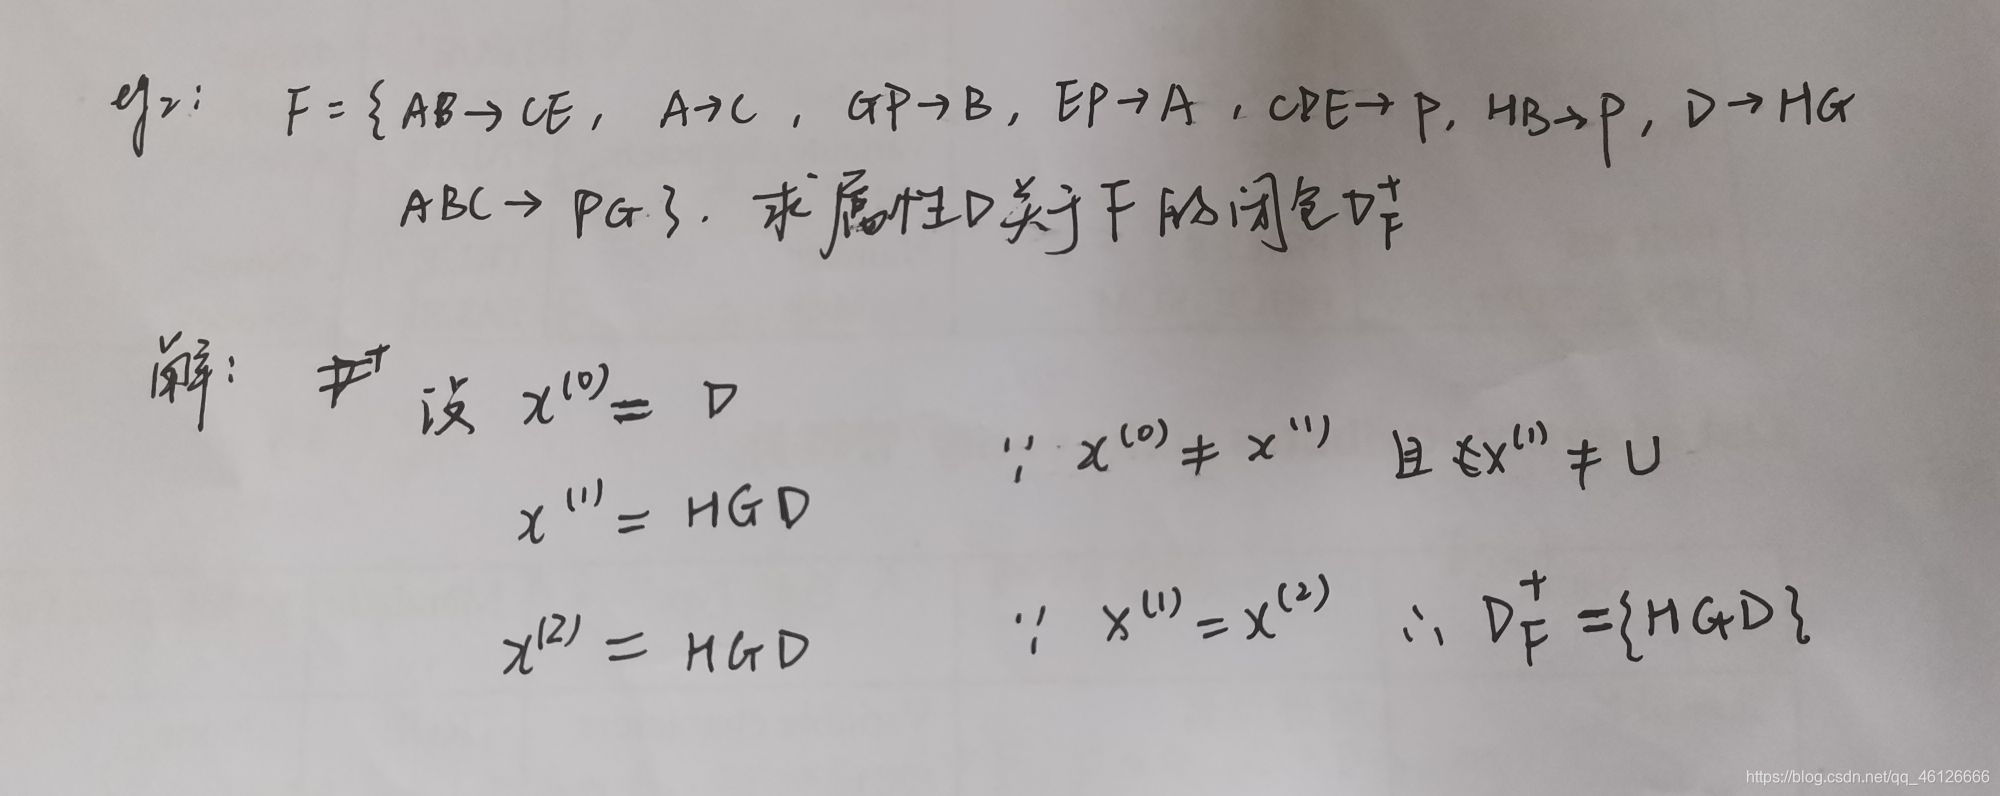 eg2: F={AB→CE, A→C, GP→B, EP→A, CDE→P, HB→P, D→HG
ABC→PG}. 求属性D关于F的闭包D⁺F
解: 设 x⁽⁰⁾= D
∵ x⁽⁰⁾≠x⁽¹⁾ 且 x⁽¹⁾≠U
x⁽¹⁾= HGD
x⁽²⁾= HGD ∵ x⁽¹⁾=x⁽²⁾ ∴ D⁺F={HGD}
https://blog.csdn.net/qq_46126666